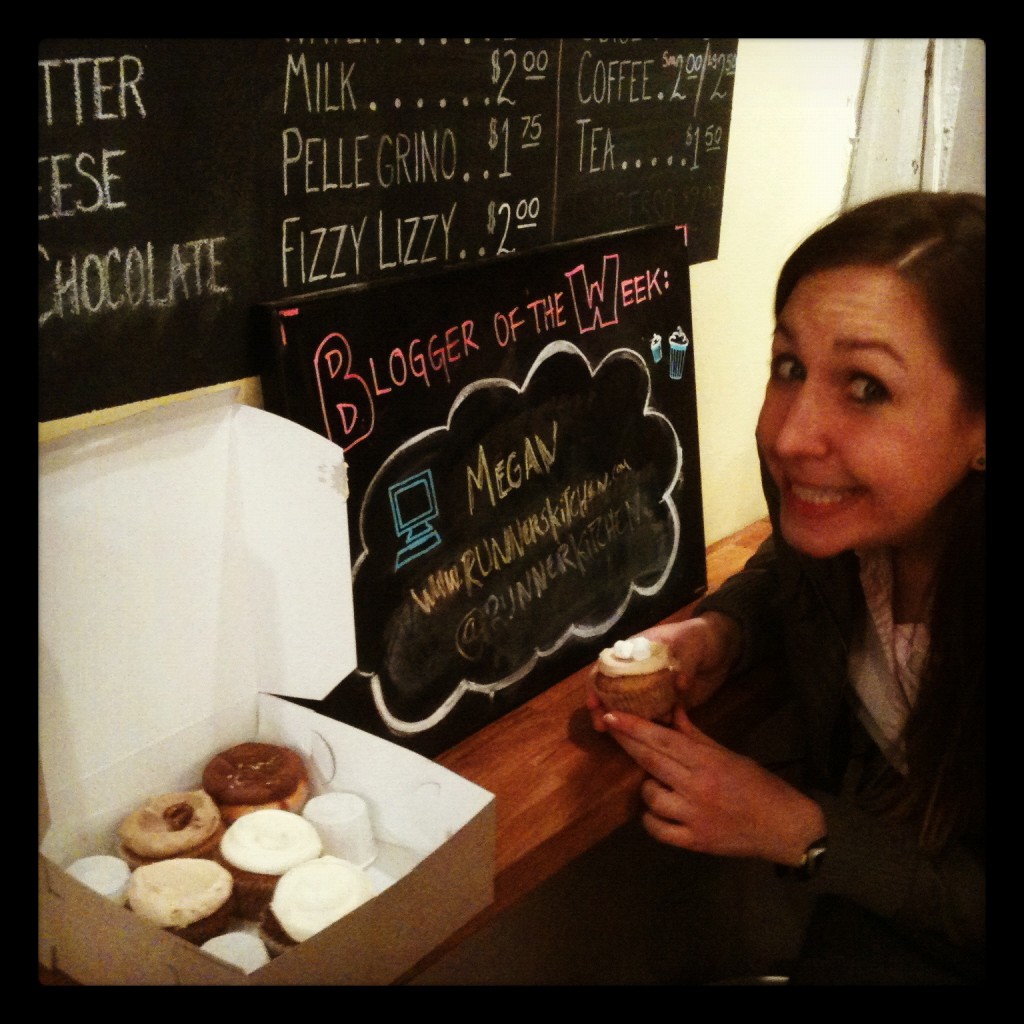 TTER
EESE
CHOCOLATE
WATER
MILK......$2.00
PELLEGRINO..$1.75
FIZZY LIZZY..$2.00
COFFEE.2.00/2.50
TEA.....$1.50
BLOGGER OF THE WEEK:
MEGAN
www.RUNNERSKITCHEN.com
@RUNNERKITCHEN